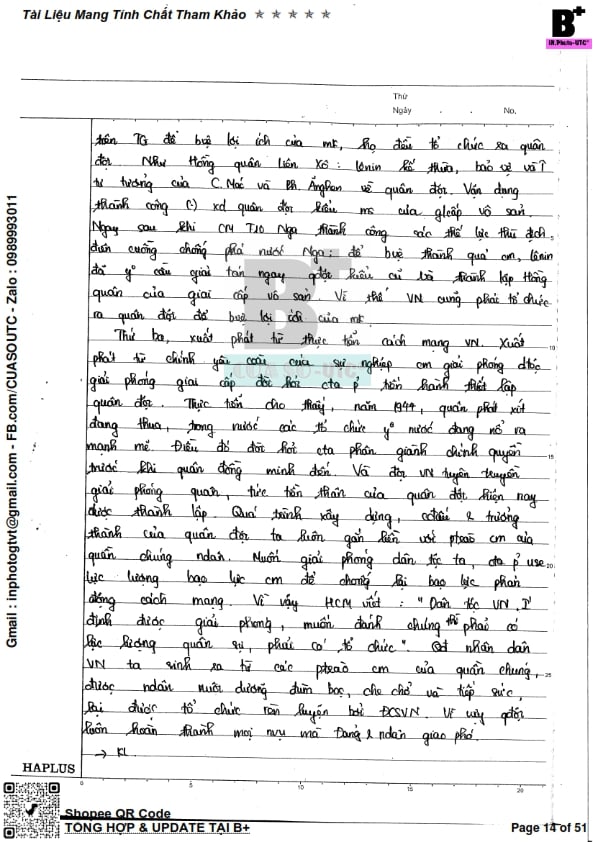 Tài Liệu Mang Tính Chất Tham Khảo ★ ★ ★ ★ ★
B+
IN.Photo-UTC
Thứ
Ngày . . No.
trên TG để bvệ lợi ích của mk, họ đều tổ chức ra quân
đội. Như Hồng quân liên Xô: lênin kế thừa, bảo vệ và
tư tưởng của C. Mác và Ph. Ănghen về quân đội. Vận dụng
thành công (:) xd quân đội kiểu ms của glcấp vô sản.
Ngay sau khi CM T10 Nga thành công các thế lực thù địch
điên cuồng chống phá nước Nga: để bvệ thành quả cm, lênin
đã y° cầu giải tán ngay qđội kiểu cũ và thành lập Hồng
quân của giai cấp vô sản. Vì thế VN cũng phải tổ chức
ra quân đội để bvệ lợi ích của mk.
Thứ ba, xuất phát từ thực tiễn cách mạng VN. Xuất
phát từ chính yêu cầu của sự nghiệp cm giải phóng dtộc
giải phóng giai cấp đòi hỏi cta p' tiến hành thiết lập
quân đội. Thực tiễn cho thấy, năm 1944, quân phát xít
đang thua, trong nước các tổ chức y° nước đang nổ ra
mạnh mẽ. Điều đó đòi hỏi cta phân giành chính quyền
trước khi quân đồng minh đến. Và đội VN tuyên truyền
giải phóng quân, tức tiền thân của quân đội hiện nay
được thành lập. Quá trình xây dựng, cđấu & trưởng
thành của quân đội ta luôn gắn liền với ptcao cm của
quần chúng ndân. Muốn giải phóng dân tộc ta, cta p' use
lực lượng bạo lực cm để chống lại bạo lực phản
động cách mạng. Vì vậy HCM viết: "Dân tộc VN
định được giải phóng, muốn đánh chúng thì phải có
lực lượng quân sự, phải có tổ chức". Qđ nhân dân
VN ta sinh ra từ các ptcao cm của quần chúng,
được ndân nuôi dưỡng đùm bọc, che chở và tiếp sức,
lại được tổ chức rèn luyện bởi ĐCSVN. Vì vậy qđội
luôn hoàn thành mọi nvụ mà Đảng & ndân giao phó.
→ KL
5
10
15
20
25
B+
CUASO-UTC
Gmail : inphotogtvt@gmail.com - FB.com/CUASOUTC - Zalo : 0989993011
HAPLUS
0 5 10 15 20
Shopee QR Code
TỔNG HỢP & UPDATE TẠI B+
Page 14 of 51